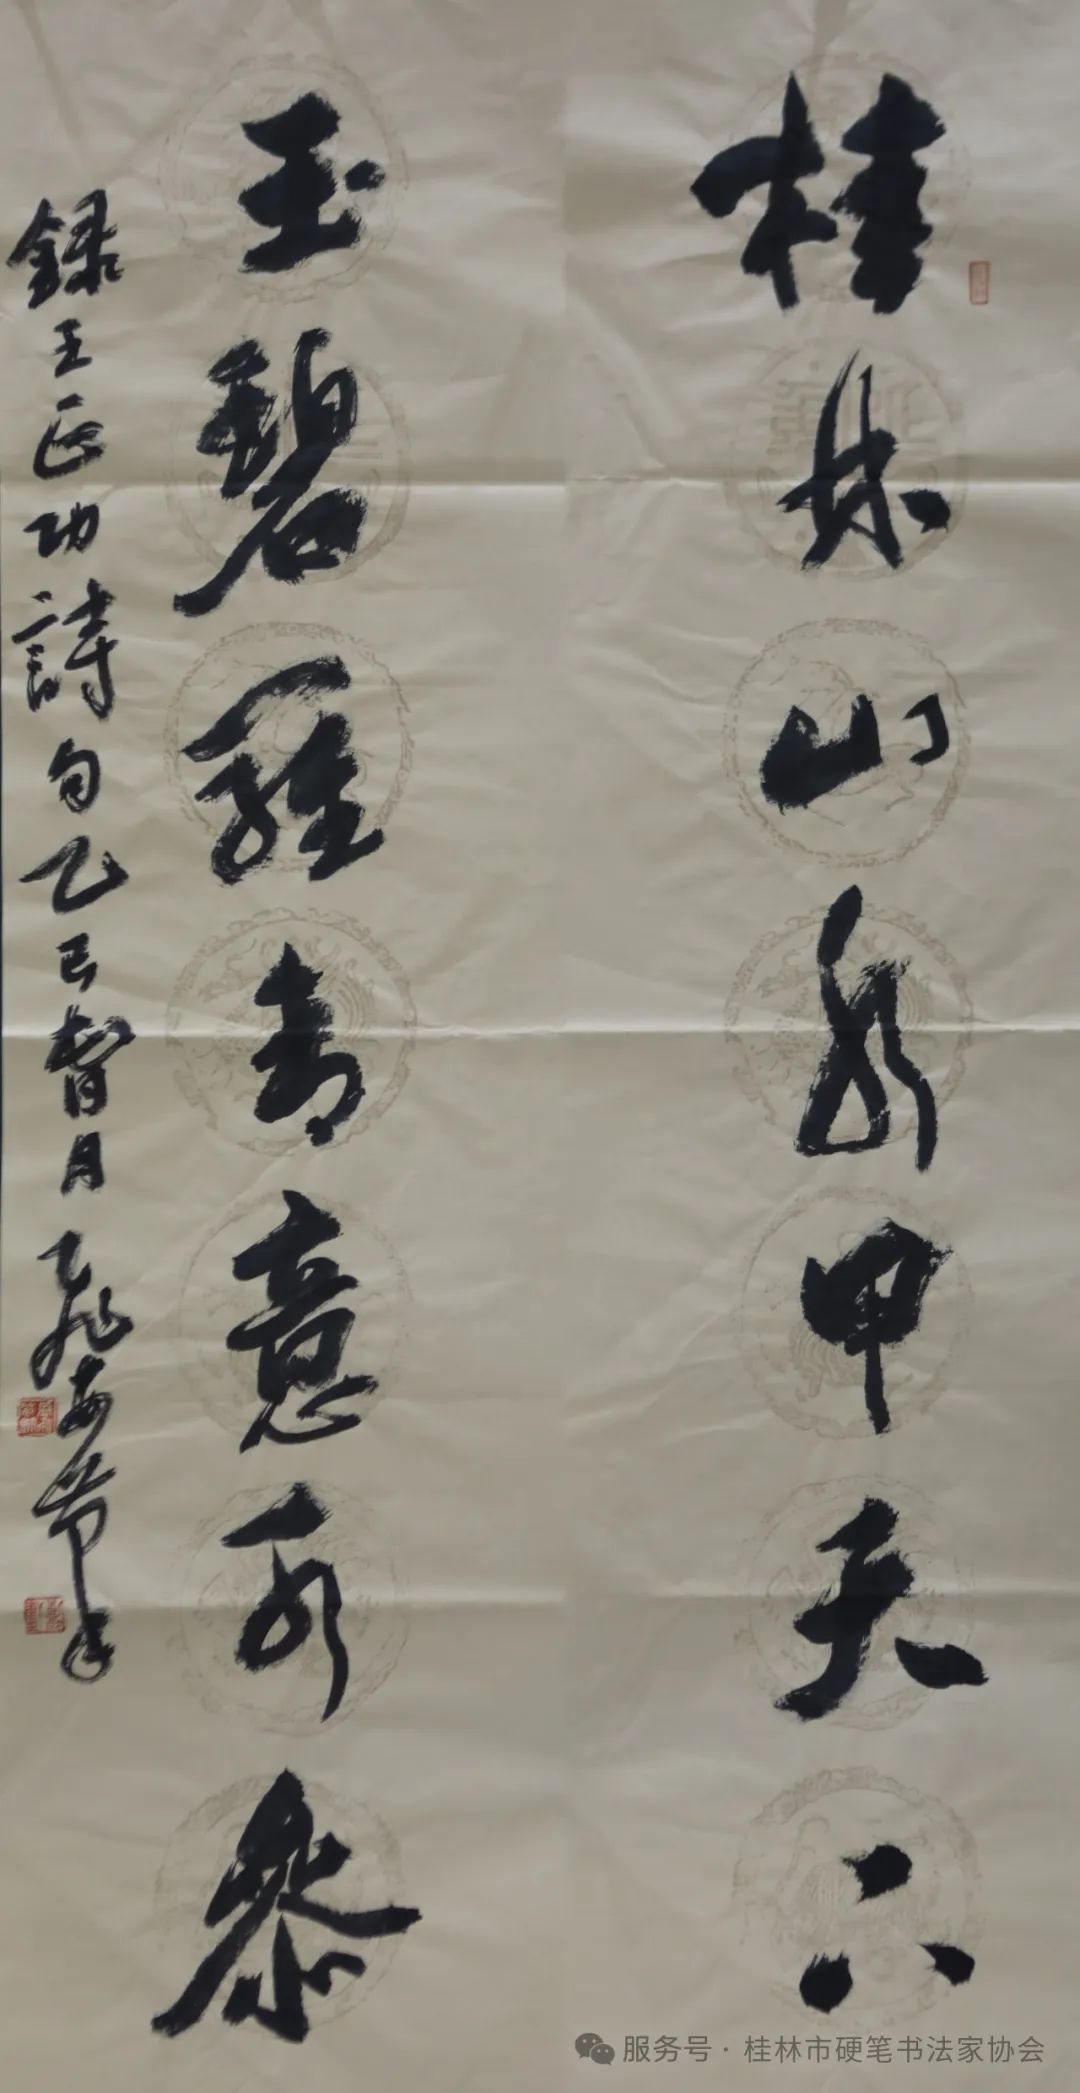 桂林山水甲天下
玉碧羅青意可參
録王正功詩句乙巳
月
服务号·桂林市硬笔书法家协会